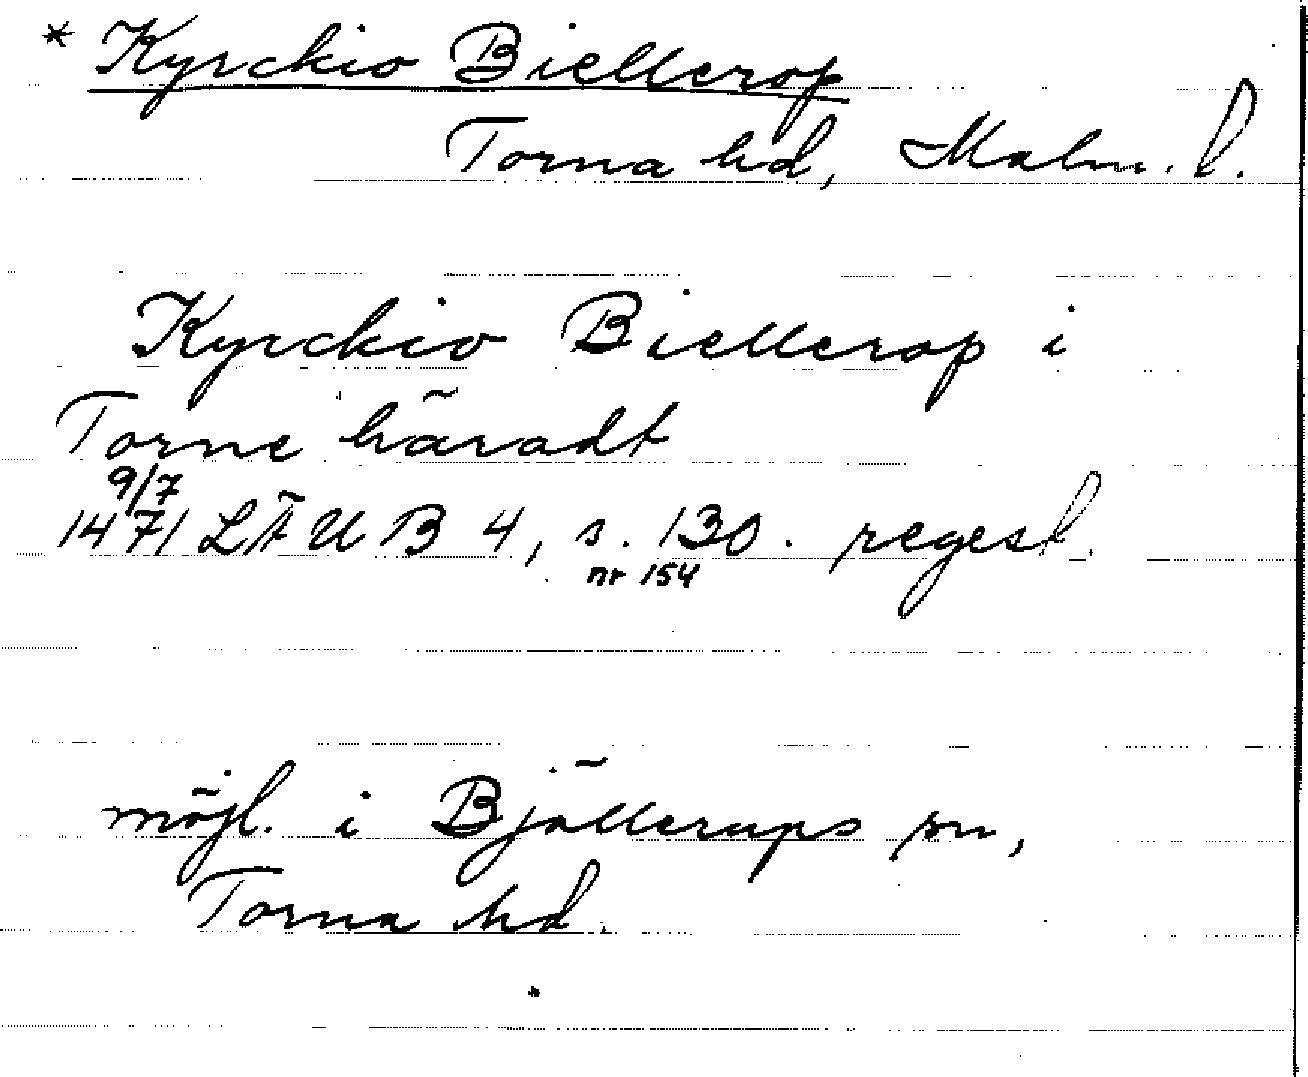 * Kyrckio Biellerop
Torna hd, Malm. l.
Kyrckio Biellerop i
Torne häradt
9/7
1471 LÄUB 4, s. 130. regest.
nr 154
möjl. i Bjällerups sn,
Torna hd.